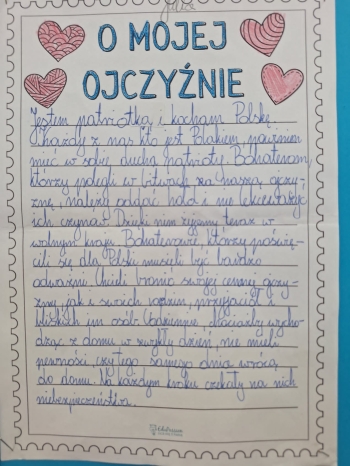 O MOJEJ
OJCZYŹNIE
Jestem patriotką i kocham Polskę.
Każdy z nas kto jest Polakiem, powinien
mieć w sobie ducha patrioty. Bohaterom,
którzy polegli w bitwach za naszą ojczy-
znę, należy oddać hołd i nie lekceważyć
ich czynów. Dzięki nim żyjemy teraz w
wolnym kraju. Bohaterowie, którzy poświę-
cili się dla Polski musieli być bardzo
odważni. Chcieli bronić swojej cennej ojczy-
zny, jak i swoich rodzin, przyjaciół i
bliskich im osób. Codziennie, chociażby wycho-
dząc z domu w zwykły dzień, nie mieli
pewności, czy tego samego dnia wrócą
do domu. Na każdym kroku czekały na nich
niebezpieczeństwa.